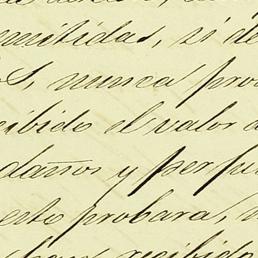 emitidas, si de
os, nunca pro
cibido el valor d
daños y perju
este probara, n
recibido